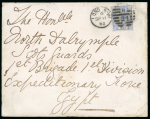 The Honble
North Dalrymple
Scots Guards
1st Brigade 1st Division
Expeditionary Force
Egypt